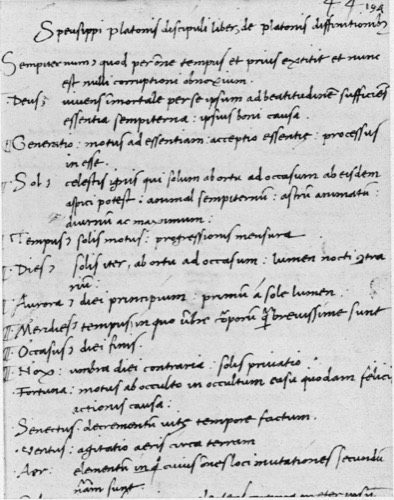 44. 194
Speusippi platonis discipuli liber, de platonis diffinitionibꝫ
Sempiternum, quod per om̄e tempus et prius extitit et nunc
est nulli corruptioni obnoxium.
Deus, viuens īmortale per se ipsum ad beatitudinem sufficiēs
essentia sempiterna: ipsius boni causa.
Generatio: motus ad essentiam: acceptio essentię: processus
in esse.
Sol, celestis ignis qui solum ab ortu ad occasum ab eisdem
aspici potest: animal sempiternū: astrū animatū:
diurnum ac maximum:
Tempus, solis motus: progressionis mensura
Dies, solis iter, ab ortu ad occasum: lumen nocti ɔtra
riū:
Aurora, diei principium: primū á sole lumen.
Meridies, tempus, in quo vmbre corporū breuissime sunt
Occasus, diei finis.
Nox: vmbra diei contraria: solis priuatio.
Fortuna: motus ab occulto in occultum casu quodam felici
actionis causa:
Senectus: decrementū vitę tempore factum.
Ventus: agitatio aeris circa terram
Aer: elementū in q̊ cuius om̄es loci mutationes secundū
nām sunt.